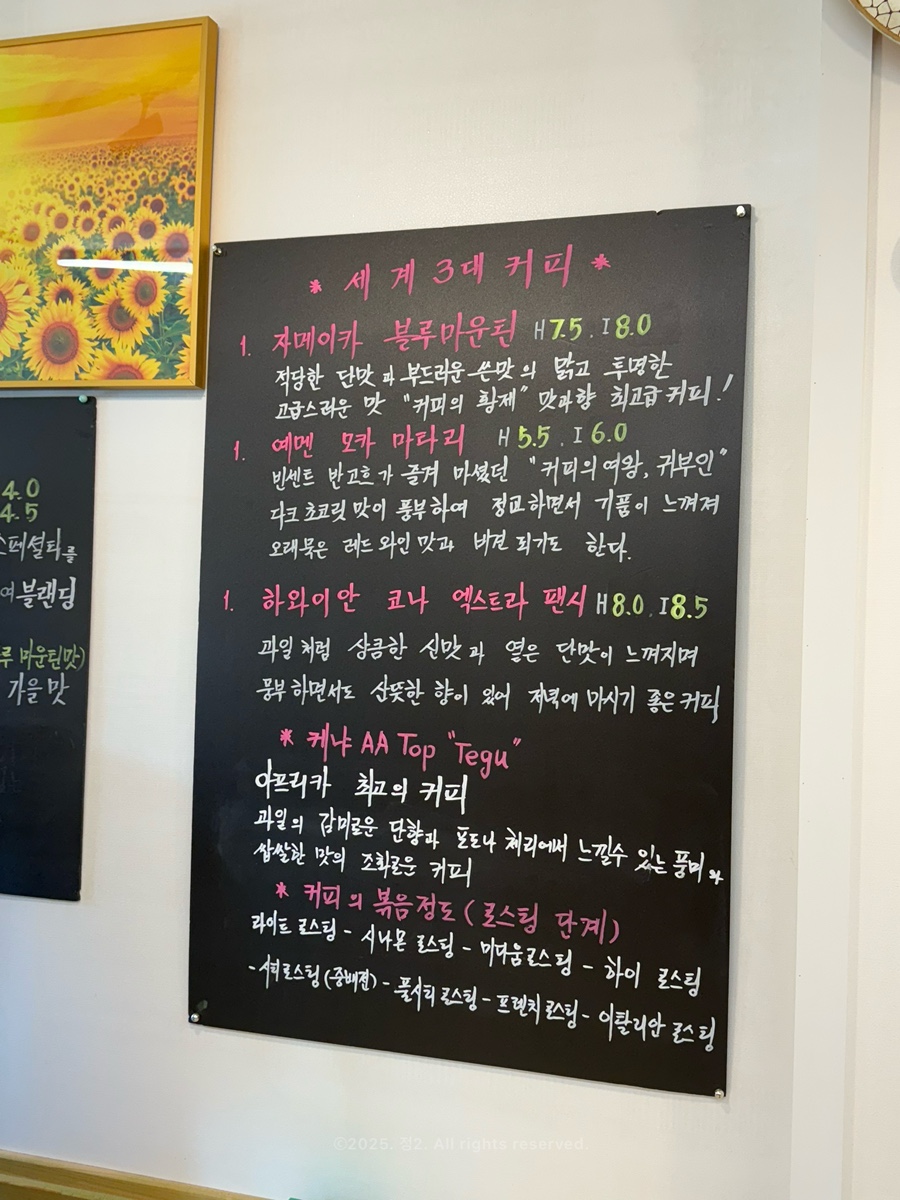 4.0
4.5
스페셜티를
여 블랜딩
루 마운틴맛)
가을 맛
* 세계 3대 커피 *
1. 자메이카 블루마운틴 H 7.5 . I 8.0
적당한 단맛과 부드러운 쓴맛의 맑고 투명한
고급스러운 맛 "커피의 황제" 맛과향 최고급 커피!
1. 예멘 모카 마타리 H 5.5 . I 6.0
빈센트 반고흐가 즐겨 마셨던 "커피의 여왕, 귀부인"
다크초코릿 맛이 풍부하여 정교하면서 기품이 느껴져
오래묵은 레드와인 맛과 비견 되기도 한다.
1. 하와이안 코나 엑스트라 팬시 H 8.0 . I 8.5
과일처럼 상큼한 신맛과 옅은 단맛이 느껴지며
풍부하면서도 산뜻한 향이 있어 저녁에 마시기 좋은 커피
* 케냐 AA Top "Tegu"
아프리카 최고의 커피
과일의 감미로운 단향과 포도나 체리에서 느낄수 있는 풍미와
쌉쌀한 맛의 조화로운 커피
* 커피의 볶음정도 (로스팅 단계)
라이트 로스팅 - 시나몬 로스팅 - 미디움로스팅 - 하이 로스팅
- 시티로스팅(중배전) - 풀시티 로스팅 - 프렌치로스팅 - 이탈리안 로스팅
©2025. 점2. All rights reserved.